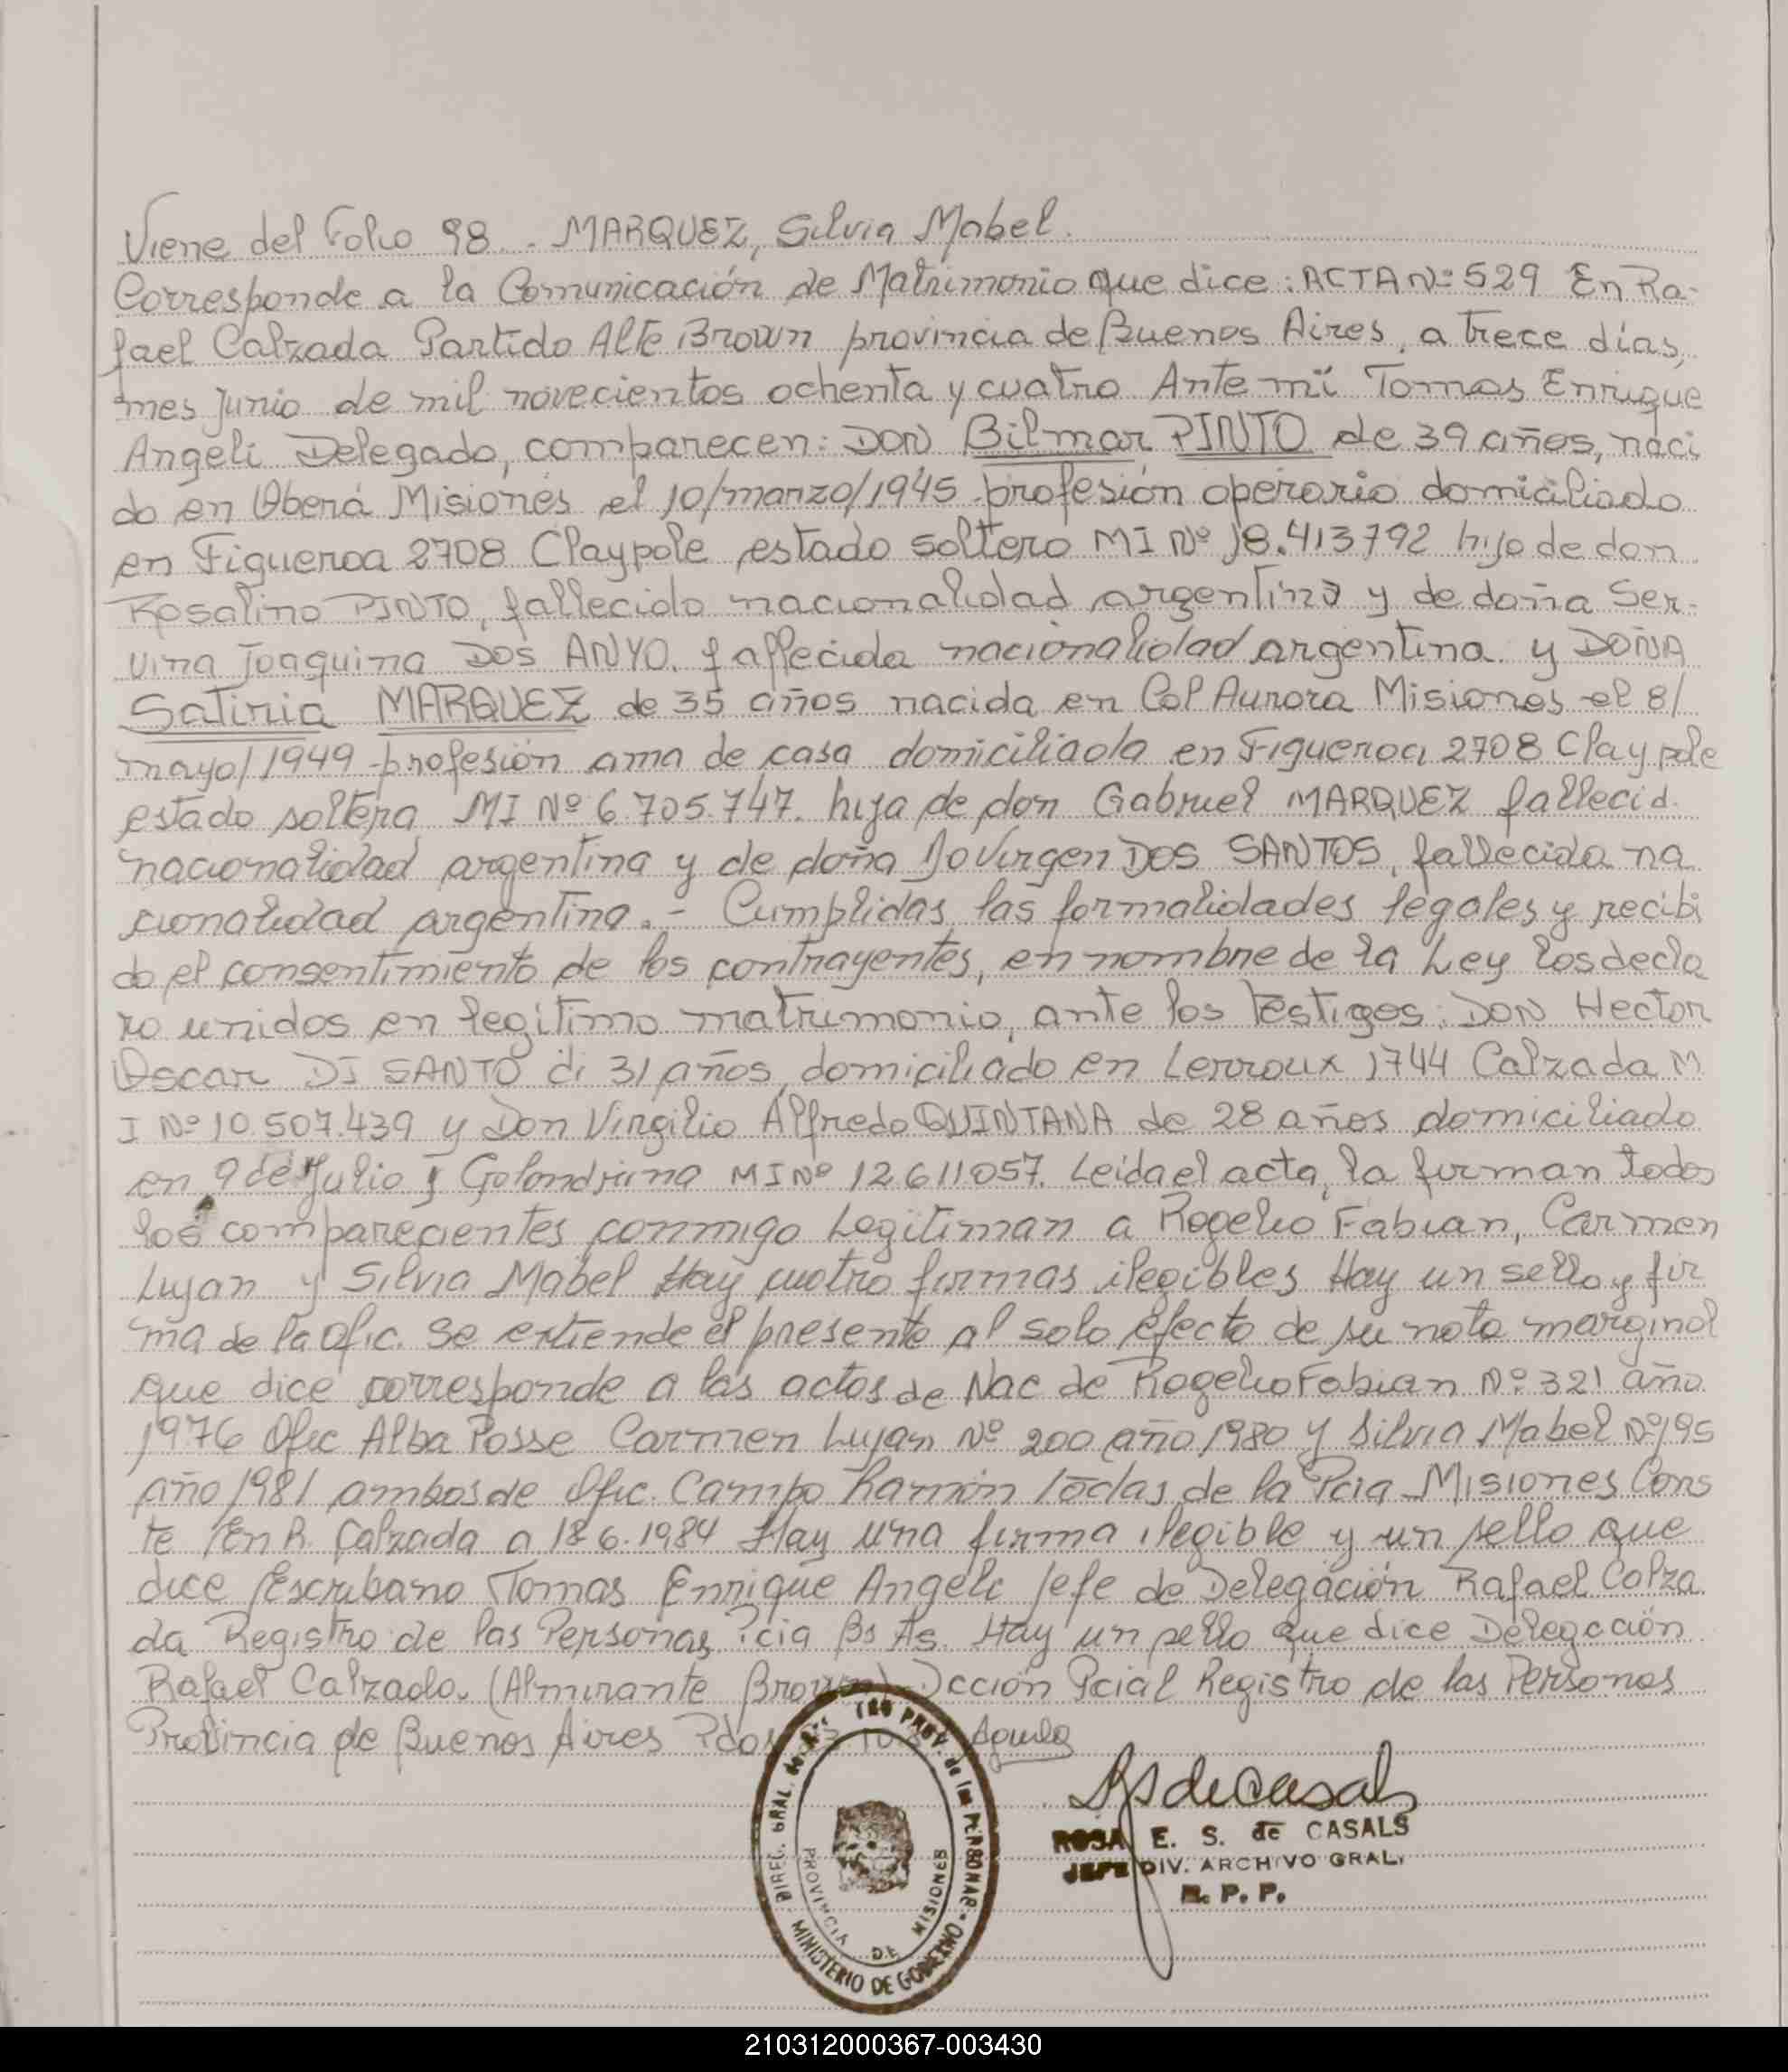 Viene del Folio 98. . MARQUEZ, Silvia Mabel.
Corresponde a la Comunicación de Matrimonio que dice: ACTA Nº 529 En Ra-
fael Calzada Partido Alte Brown provincia de Buenos Aires, a trece días,
mes Junio de mil novecientos ochenta y cuatro Ante mí Tomas Enrique
Angeli Delegado, comparecen: DON Bilmar PINTO de 39 años, naci
do en Oberá Misiones el 10/marzo/1945 profesión operario domiciliado
en Figueroa 2708 Claypole estado soltero MI Nº 18.413792 hijo de don
Rosalino PINTO, fallecido nacionalidad argentino y de doña Ser-
vina Joaquina DOS ANYO. fallecida nacionalidad argentina y DOÑA
Satiria MARQUEZ de 35 años nacida en Col Aurora Misiones el 8/
mayo/1949 profesión ama de casa domiciliada en Figueroa 2708 Claypole
estado soltera MI Nº 6.705.747. hija de don Gabriel MARQUEZ fallecid.
nacionalidad argentina y de doña Jovirgen DOS SANTOS, fallecida na
cionalidad argentina. - Cumplidas las formalidades legales y recibi
do el consentimiento de los contrayentes, en nombre de la Ley los decla
ro unidos en legítimo matrimonio, ante los testigos: DON Hector
Oscar DI SANTO di 31 años, domiciliado en Lerroux 1744 Calzada M
I Nº 10.507.439 y Don Virgilio Alfredo QUINTANA de 28 años domiciliado
en 9 de Julio y Golondrina MI Nº 12611057. Leída el acta, la firman todos
los comparecientes conmigo Legitiman a Rogelio Fabian, Carmen
Lujan y Silvia Mabel Hay cuatro firmas ilegibles Hay un sello y fir
ma de la Ofic. Se extiende el presente al solo efecto de su nota marginal
que dice corresponde a las actas de Nac de Rogelio Fabian Nº 321 año
1976 Ofic Alba Posse Carmen Lujan Nº 200 año 1980 y Silvia Mabel Nº 195
año 1981 ambas de Ofic. Campo Ramón todas de la Pcia Misiones Cons
te En R. Calzada a 18.6.1984 Hay una firma ilegible y un sello que
dice Escribano Tomas Enrique Angeli Jefe de Delegación Rafael Calza
da Registro de las Personas Pcia Bs As. Hay un sello que dice Delegación
Rafael Calzada. (Almirante Brown) Dcción Pcial Registro de las Personas
Provincia de Buenos Aires Pdas
DIREC. GRAL. PROV. de las PERSONAS
MINISTERIO DE GOBIERNO
PROVINCIA DE MISIONES
ROSA E. S. de CASALS
JEFE DIV. ARCHIVO GRAL.
R. P. P.
210312000367-003430